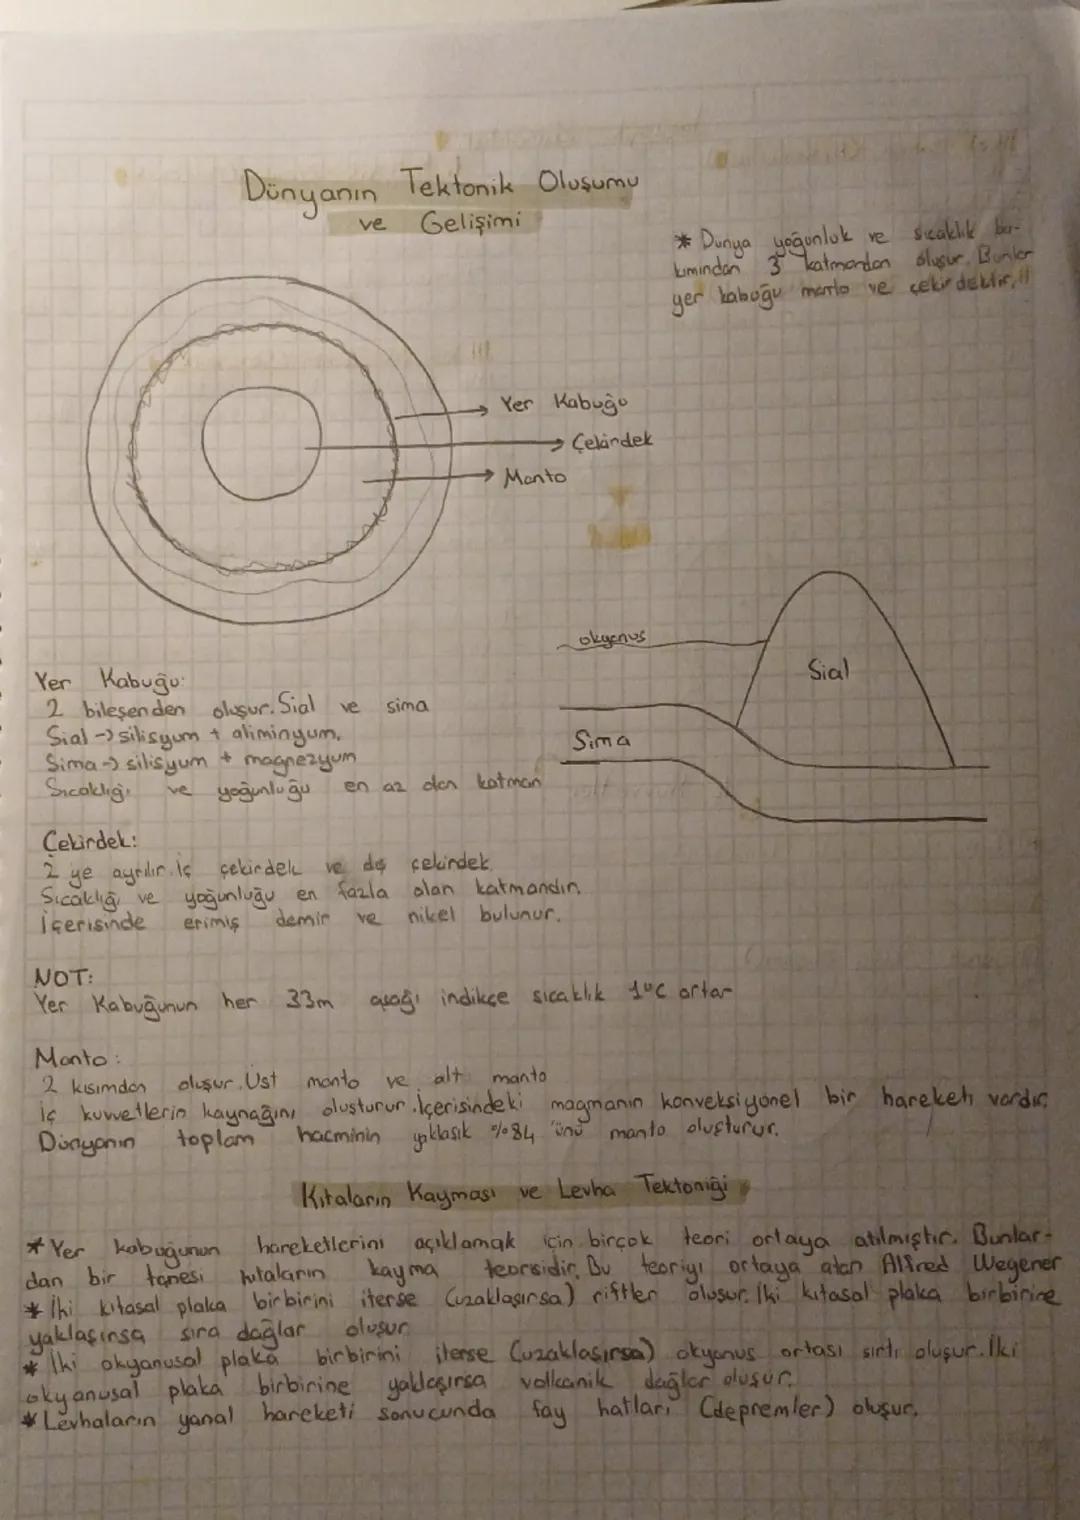 Dünyanın Tektonik Oluşumu
ve Gelişimi
* Dünya yoğunluk ve sıcaklık ba-
kımından 3 katmandan oluşur. Bunlar
yer kabuğu manto ve çekirdektir.
Yer Kabuğu
Çekirdek
Manto
okyanus
Sial
Sima
Yer Kabuğu:
2 bileşenden oluşur. Sial ve sima
Sial → silisyum + aliminyum.
Sima → silisyum + magnezyum
Sıcaklığı ve yoğunluğu en az olan katman
Çekirdek:
2 ye ayrılır. İç çekirdek ve dış çekirdek.
Sıcaklığı ve yoğunluğu en fazla olan katmandır.
İçerisinde erimiş demir ve nikel bulunur.
NOT:
Yer Kabuğunun her 33m aşağı indikçe sıcaklık 1°C artar
Manto:
2 kısımdan oluşur. Üst manto ve alt manto
İç kuvvetlerin kaynağını oluşturur. İçerisindeki magmanın konveksiyonel bir hareketi vardır.
Dünyanın toplam hacminin yaklaşık %84 'ünü manto oluşturur.
Kıtaların Kayması ve Levha Tektoniği
* Yer kabuğunun hareketlerini açıklamak için birçok teori ortaya atılmıştır. Bunlar-
dan bir tanesi kıtaların kayma teorsidir. Bu teoriyi ortaya atan Alfred Wegener
* İki kıtasal plaka birbirini iterse (uzaklaşırsa) riftler oluşur. İki kıtasal plaka birbirine
yaklaşırsa sıra dağlar oluşur
* İki okyanusal plaka birbirini iterse (uzaklaşırsa) okyanus ortası sırtı oluşur. İki
okyanusal plaka birbirine yaklaşırsa volkanik dağlar oluşur.
* Levhaların yanal hareketi sonucunda fay hatları (depremler) oluşur.